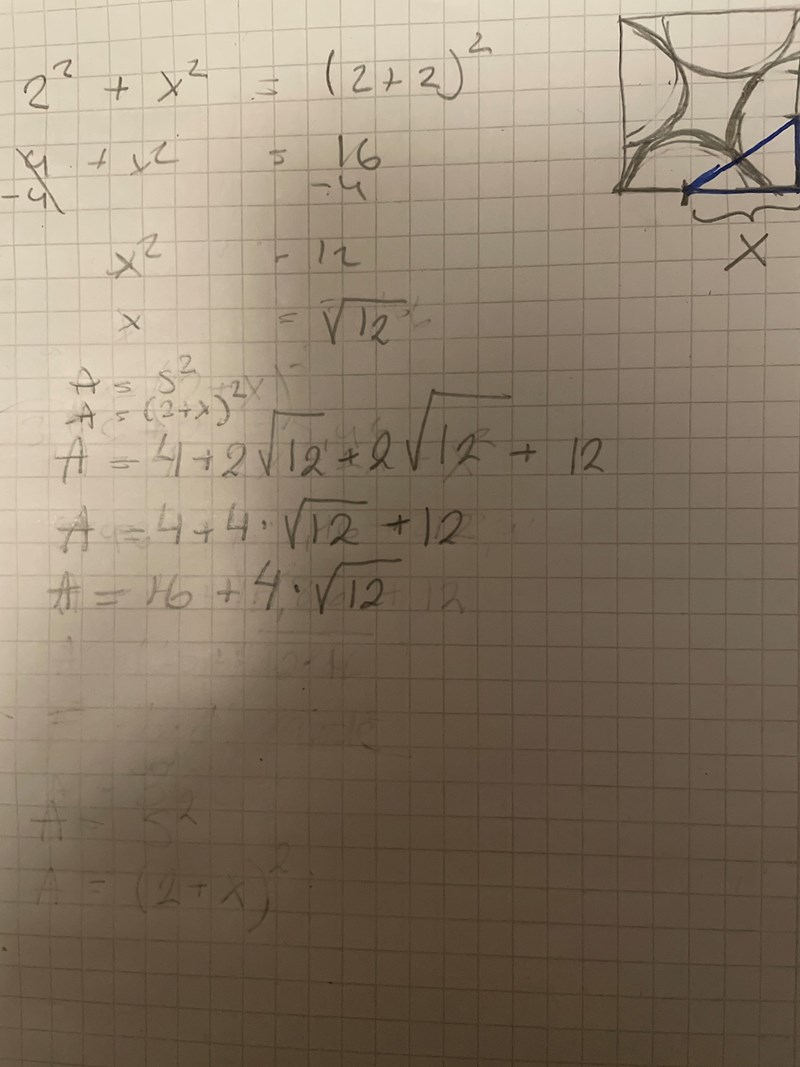 2² + x² = (2+2)²
4 + x² = 16
-4 -4
x² - 12
x = √12
A = s²
A = (2+x)²
A = 4 + 2√12 + 2√12 + 12
A = 4 + 4·√12 + 12
A = 16 + 4·√12
A = s²
A = (2+x)²
X